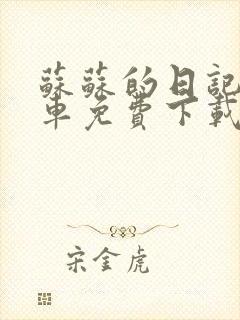 蘇蘇的日記
車免費下載
宋金虎